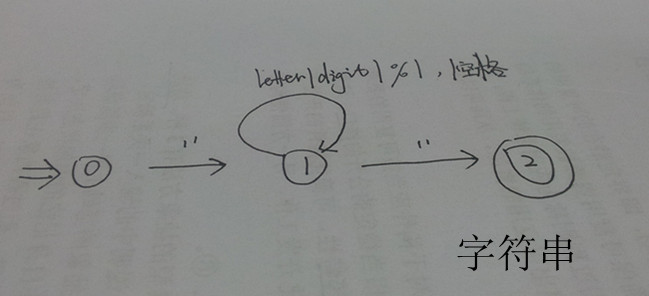 0
"
1
letter|digit|%|,|空格
"
2
字符串